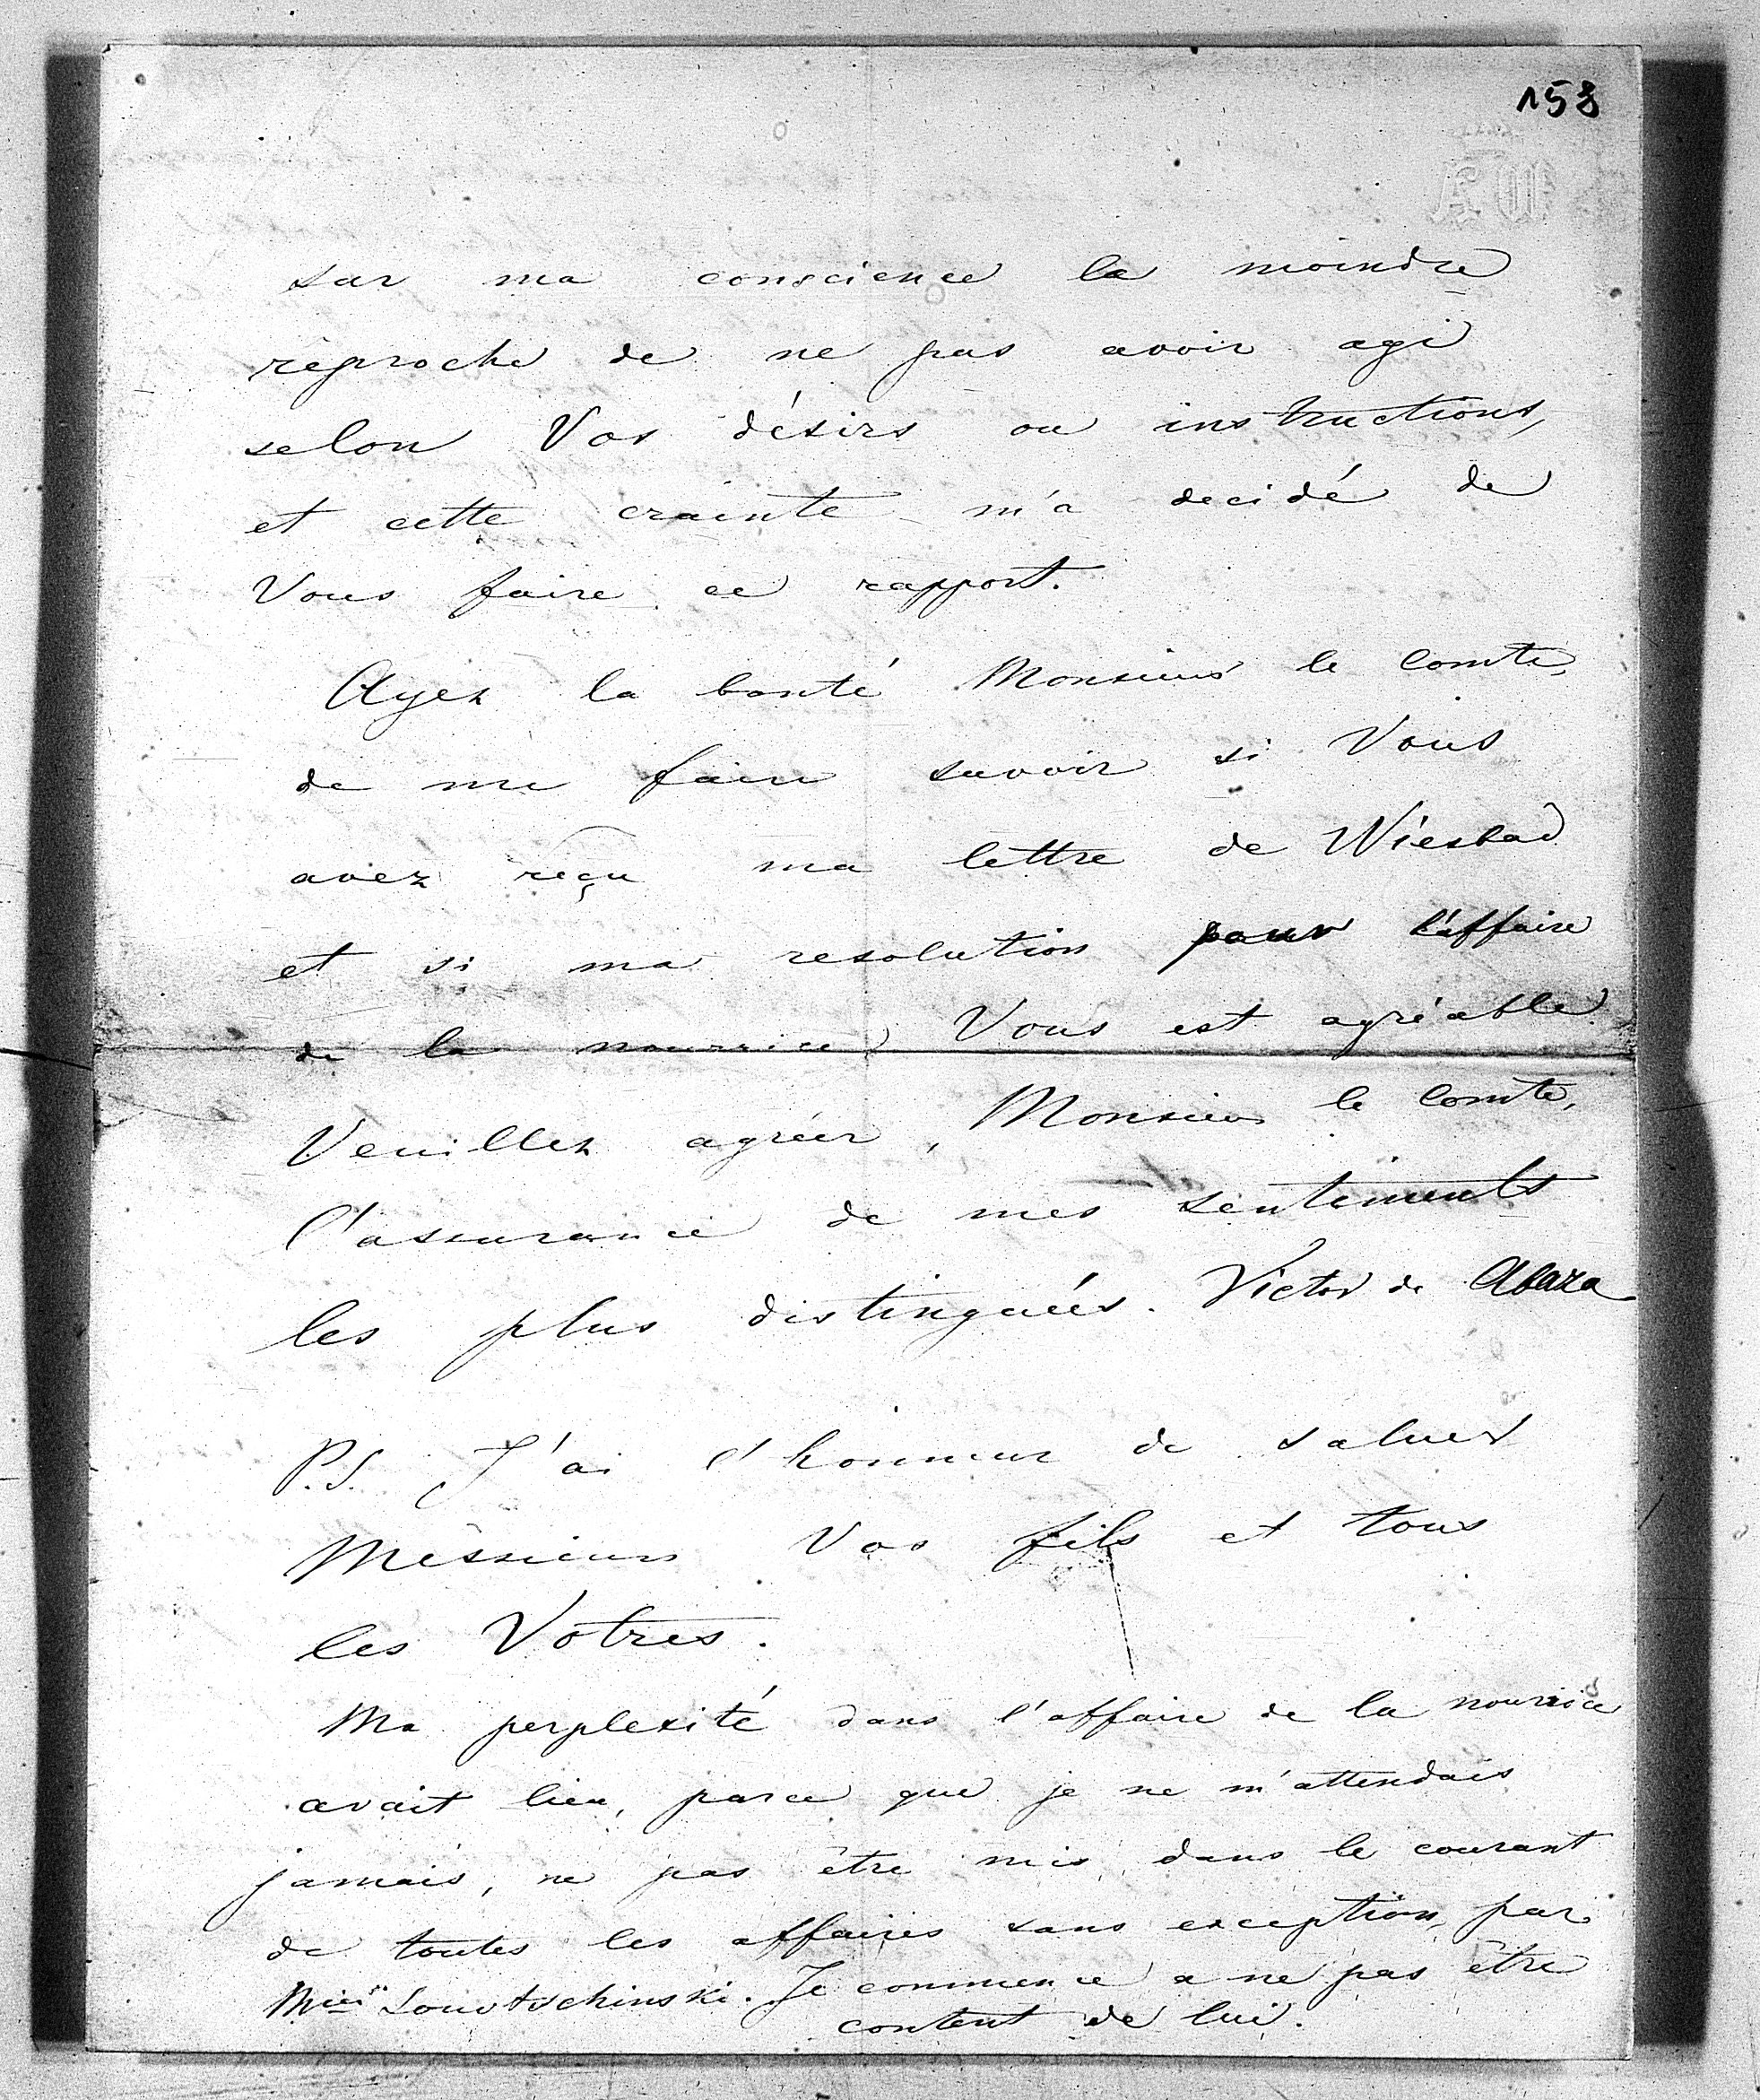 158
sur ma conscience la moindre
réproche de ne pas avoir agi
selon Vos désirs ou instructions,
et cette crainte m'a decidé de
Vous faire ce rapport.
Ayez la bonté Monsieur le Comte,
de me faire savoir si Vous
avez reçu ma lettre de Wiesbad
et si ma resolution pour l'affaire
de la nourrice Vous est agréable
Veuillez agréer, Monsieur le Comte,
l'assurance de mes sentiments
les plus distingués. Victor de Abaza
P.S. J'ai l'honneur de saluer
Messieurs Vos fils et tous
les Vôtres.
Ma perplexité dans l'affaire de la nourrice
avait lieu, parce que je ne m'attendais
jamais, ne pas être mis dans le courant
de toutes les affaires sans exception, par
. Je commence a ne pas être
content de lui.